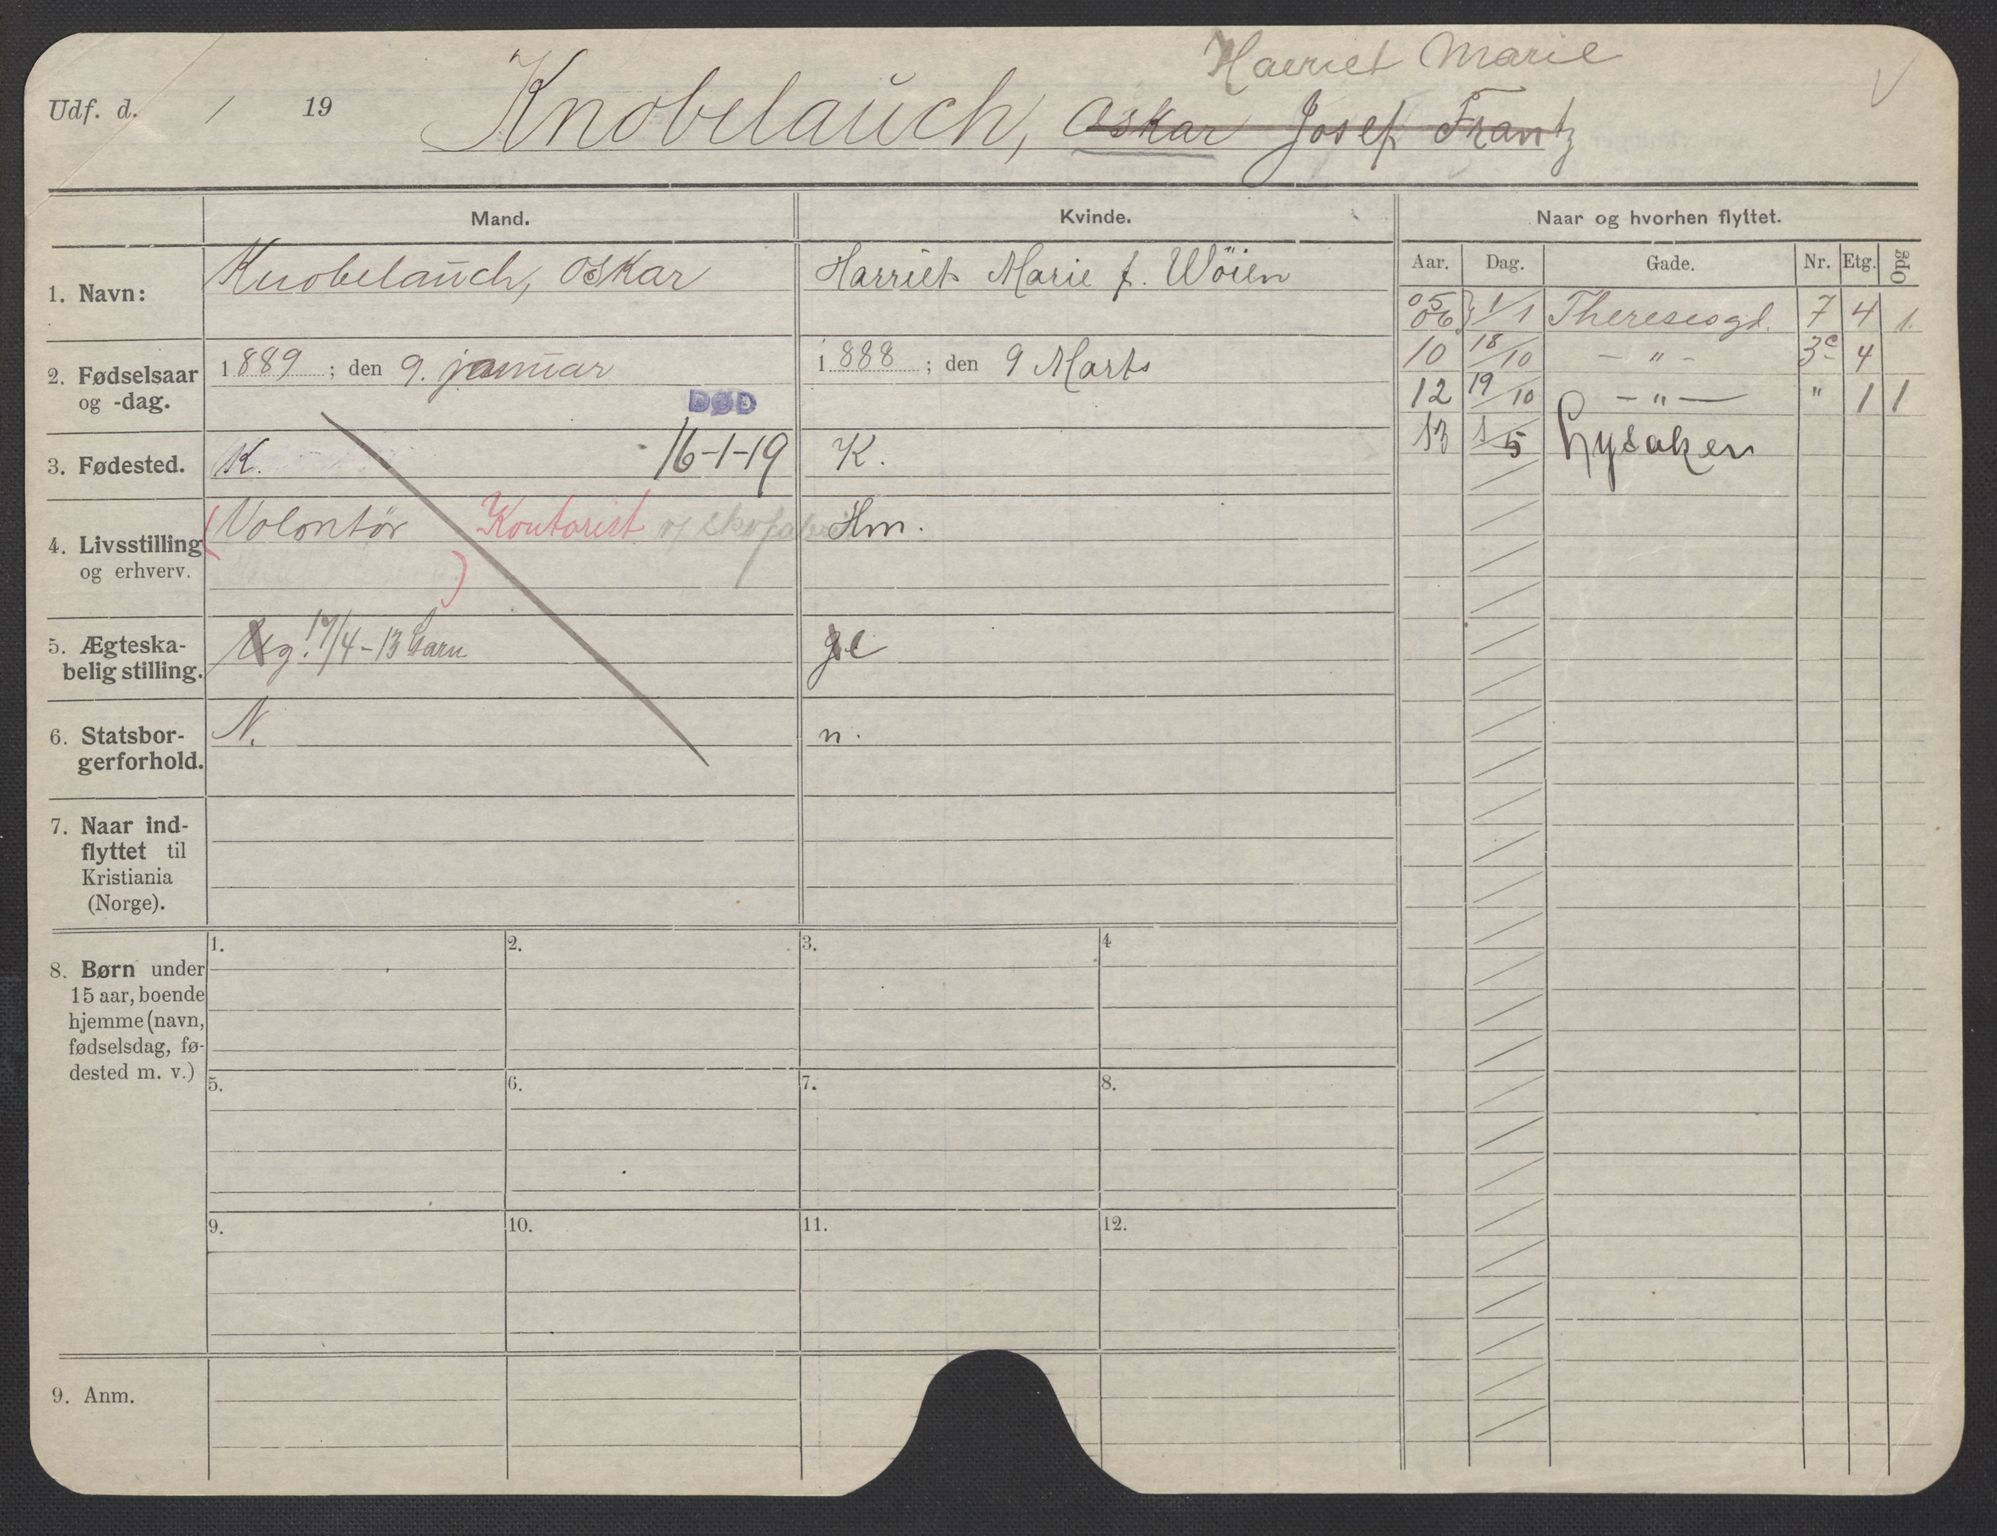 Harriet Marie
Udf. d. / 19 Knobelauch, Oskar Josef Frantz
Mand. Kvinde. Naar og hvorhen flyttet.
Aar. Dag. Gade. Nr. Etg. Opg
1. Navn: Knobelauch, Oskar Harriet Marie f. Wöien
05
06 } 1/1 Theresesgd. 7 4 1.
10 18/10 — " — 3c 4
12 19/10 — " — " 1 1
13 1/5 Lysaker
2. Fødselsaar 1889 ; den 9. januar 1888 ; den 9 Marts
og -dag. DØD
3. Fødested. K. 16-1-19 K.
4. Livsstilling (Volontør Kontorist Hm.
og erhverv. )
5. Ægteska- Ug! 17/4-13 Garn g e
belig stilling.
6. Statsbor- N. n.
gerforhold.
7. Naar ind-
flyttet til
Kristiania
(Norge).
8. Børn under
15 aar, boende
hjemme (navn,
fødselsdag, fø-
dested m. v.)
1. 2. 3. 4
5. 6. 7. 8.
9. 10. 11. 12.
9. Anm.